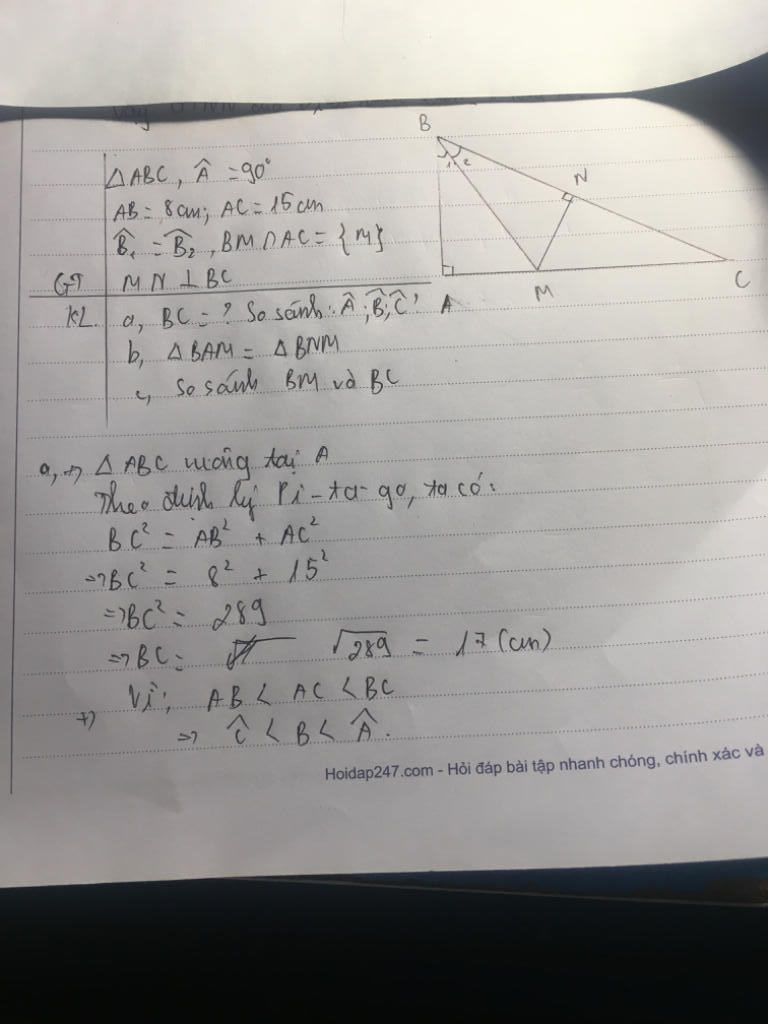 B
1 2
N
M
C
A
△ABC, Â = 90°
AB = 8cm; AC = 15cm
B̂₁ = B̂₂, BM ∩ AC = {M}
GT MN ⊥ BC
KL a, BC = ? So sánh: Â; B̂; Ĉ
b, △BAM = △BNM
c, So sánh BM và BC
a, +) △ABC vuông tại A
Theo định lý Pi-ta-go, ta có:
BC² = AB² + AC²
=> BC² = 8² + 15²
=> BC² = 289
=> BC = √289 = 17 (cm)
+) Vì: AB < AC < BC
=> Ĉ < B < Â.
Hoidap247.com - Hỏi đáp bài tập nhanh chóng, chính xác và